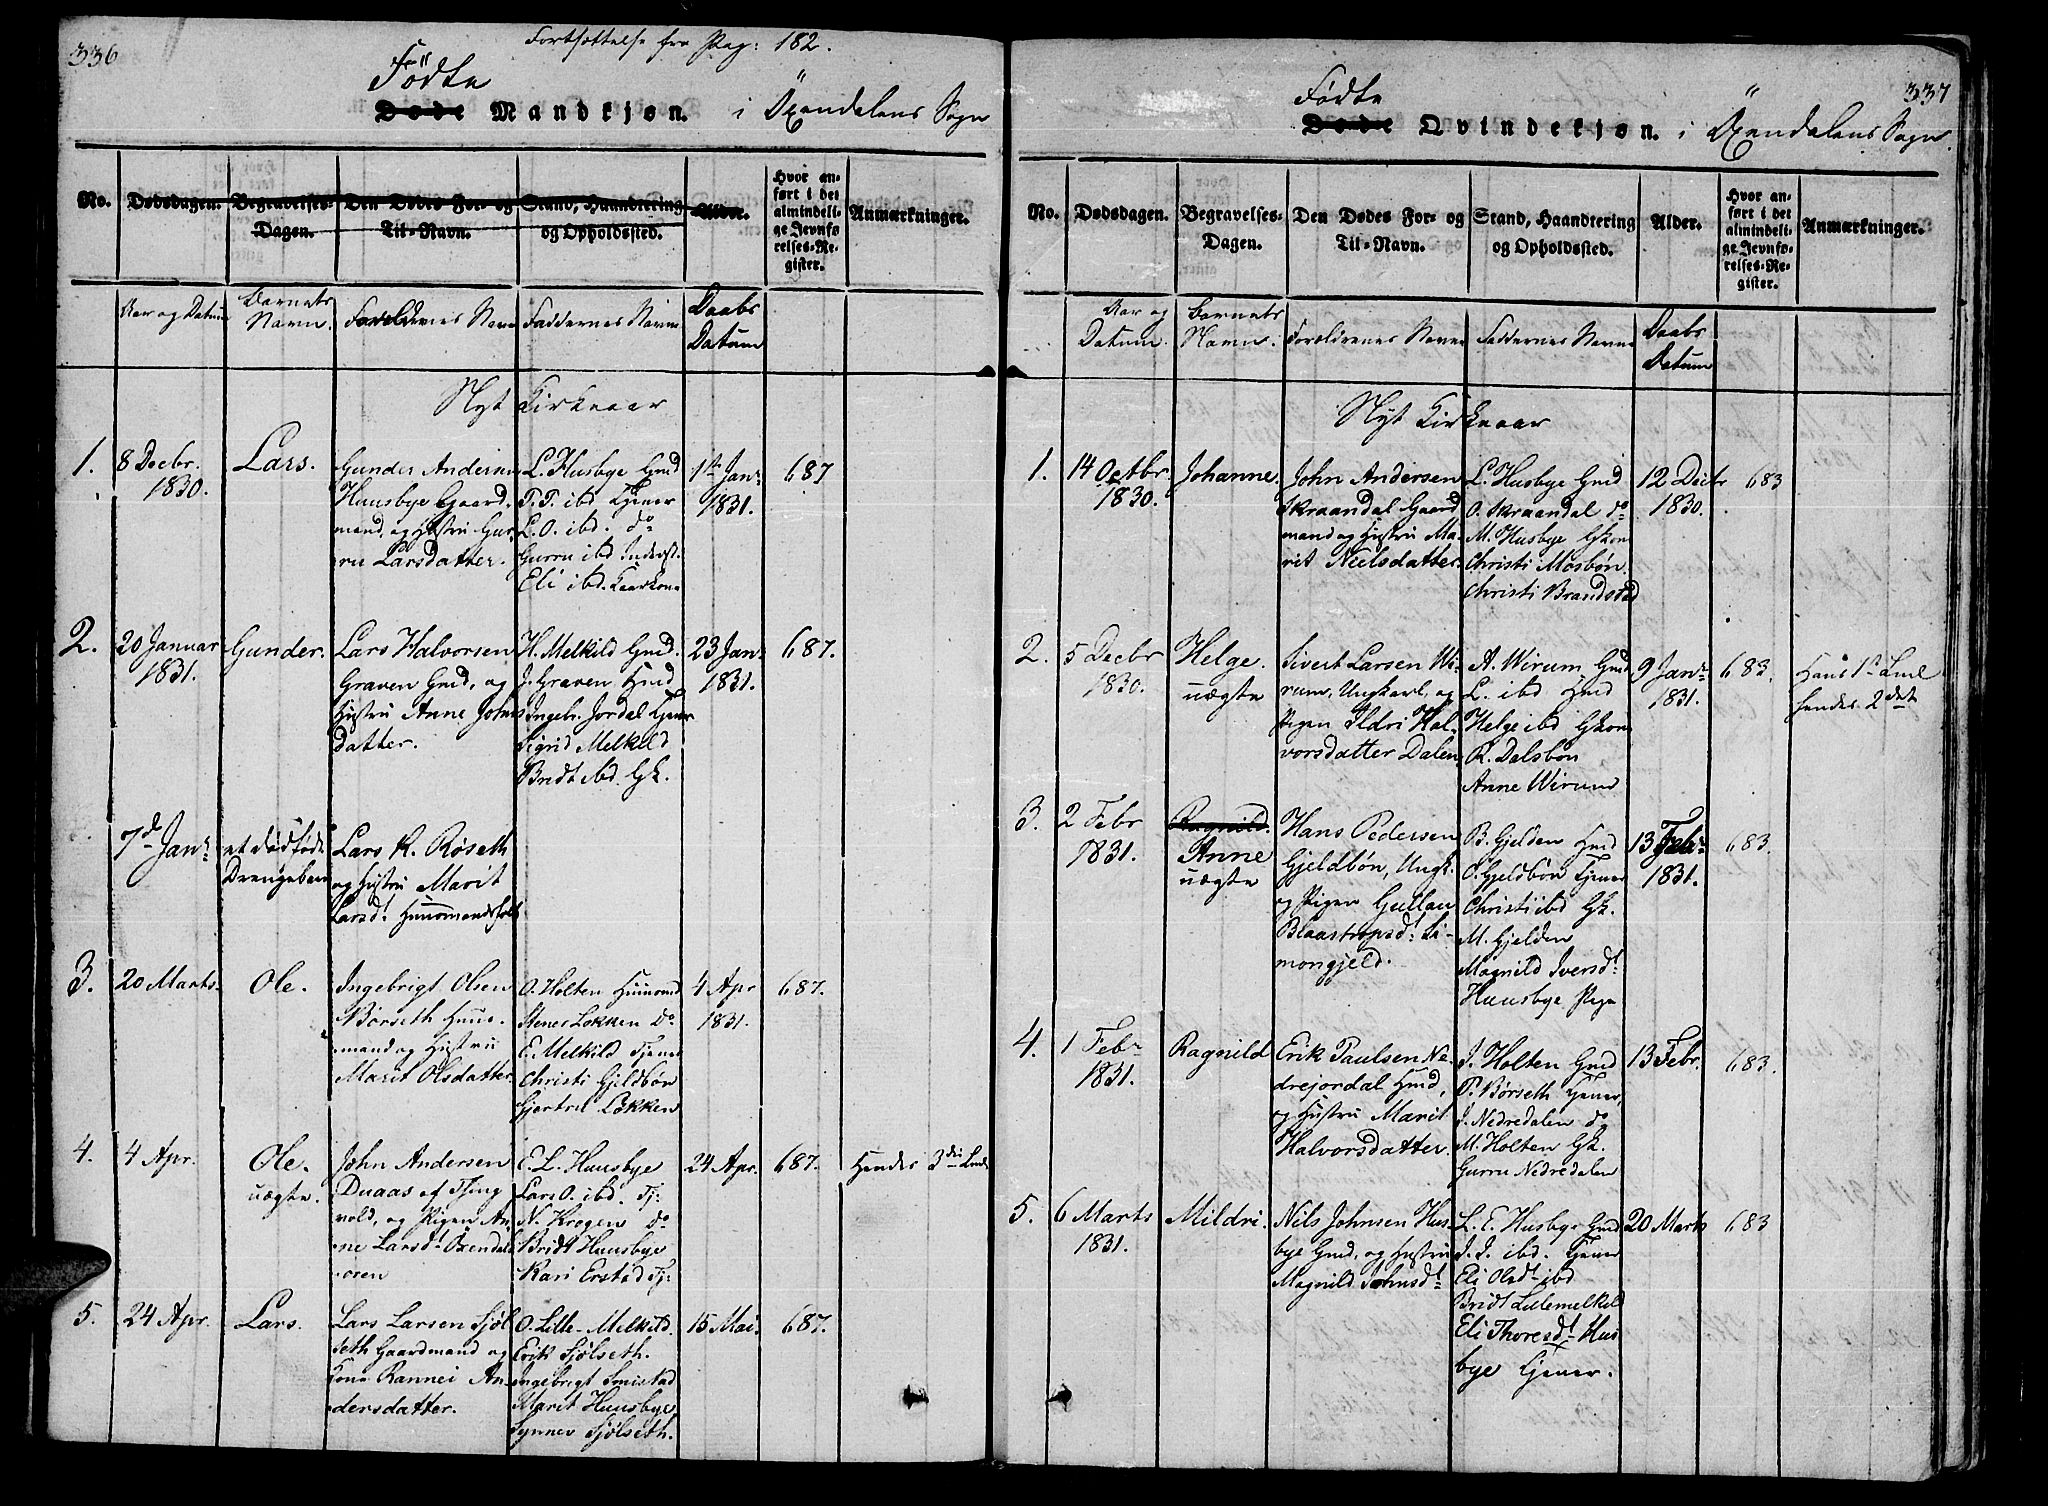 336
Fortsættelse fra Pag: 182.
Födte
Døde Mandkjøn. i Öxendalens Sogn
No.
Dødsdagen.
Begravelses-
Dagen.
Den Dødes For- og
Til-Navn.
Stand, Haandtering
og Opholdssted.
Alder.
Hvor an-
ført i det
almindeli-
ge Jevnfø-
relses-Re-
gister.
Anmærkninger.
Aar og Datum
Barnets
Navn.
Forældrenes Navn
Faddernes Navne
Daabs
Datum
Nyt Kirkeaar
1.
8 Decbr.
1830.
Lars.
Gunder Andersen
Huusbye Gaard-
mand, og Hustru Gur-
ru Larsdatter.
L. Husbye Gmd
T. T. ibd Tjener
L. O. ibd. do
Gurru ibd Inderst.
Eli ibd. Kaarkone
1ste Janr
1831.
687
2.
20 Januar
1831.
Gunder.
Lars Halvorsen
Graven Gmd, og
Hustru Anne Johns
datter.
H. Melkild Gmd.
J. Graven Hmd
Ingebr. Jordal Tjener
Sigrid Melkild
Bridt ibd. Gk.
23 Janr
1831.
687.
7d Janr
et dødfødt
Drengebarn
Lars R. Röseth
og Hustru Marit
Larsdt Huusmandsfolk
3.
20 Marts.
Ole.
Ingebrigt Olsen
Börseth Huus-
mand og Hustru
Marit Olsdatter.
O. Holten Huusmd
Stener Løkken do
E. Melkild Tjener
Christi Gjeldbön
Gjertru Løkken
4 Apr
1831.
687.
4.
4 Apr.
Ole.
uægte.
John Andersen
Duaas af Tjing
vold, og Pigen An-
ne Larsdt Öxendals
øren
E. L. Huusbye
Lars O. ibd. Tj-
N. Krogen do
Bridt Huusbye
Kari Erstad Tj:
24 Apr.
687.
Hendes 3die Leie
5.
24 Apr.
Lars.
Lars Larsen Sjöl
seth Gaardmand og
Kone Rannei An-
dersdatter.
O. Lille-Melkild.
Erik Sjölseth.
Ingebrigt Smistad
Marit Huusbye
Synnev Sjölseth.
15 Mai.
687.
337
Födte
Døde Qvindekjøn. i Öxendalens Sogn.
No.
Dødsdagen.
Begravelses-
Dagen.
Den Dødes For- og
Til-Navn.
Stand, Haandtering
og Opholdssted.
Alder.
Hvor an-
ført i det
almindeli-
ge Jevnfø-
relses-Re-
gister.
Anmærkninger.
Aar og
Datum.
Barnets
Navn.
Forældrenes Navne
Faddernes Navne
Daabs
Datum
Nyt Kirkeaar
1.
14 Octbr
1830.
Johanne.
John Andersen
Skraandal Gaard
mand og Hustru Ma-
rit Nielsdatter.
L. Husbye Gmd
O. Skraandal do
M. Husbye Gkon
Christi Mosbön.
Christi Brandstad
12 Decbr
1830.
683
2.
5 Decbr
1830.
Helge.
uægte
Sivert Larsen Wi-
rum, Ungkarl, og
Pigen Ildri Hal-
vorsdatter Dalen.
A. Wirum, Gmd
L. ibd Hmd
Helge ibd Gkon
R. Dalsbön
Anne Wirum
9 Janr
1831.
683.
Hans 1ste Leie
hendes 2det
3.
2 Febr
1831.
Ragnild.
Anne
uægte
Hans Pedersen
Gjeldbön, Ungk.
og Pigen Gullau
Blaastropsdt Si-
mongjeld.
B. Gjelden Hmd
O. Gjeldbön Tjener
Christi ibd Gk.
M. Gjelden
Magnild Iversdt
Huusbye Pige
13 Febr
1831.
683.
4.
1 Febr
1831.
Ragnild
Erik Paulsen Ne-
drejordal Hmd,
og Hustru Marit
Halvorsdatter.
J. Holten Gmd
P. Börseth Tjener,
J. Nedredalen do
M. Holten Gk.
Gurru Nedredalen
13 Febr.
683.
5.
6 Marts
1831.
Mildri.
Nils Johnsen Hus-
bye Gmd, og Hustru
Magnild Johnsdt
L. E. Husbye Gmd
J. J. ibd. Tjener
Eli Olsdt ibd
Bridt Lillemelkild
Eli Thoresdt Hus-
bye Tjener.
20 Marts
683